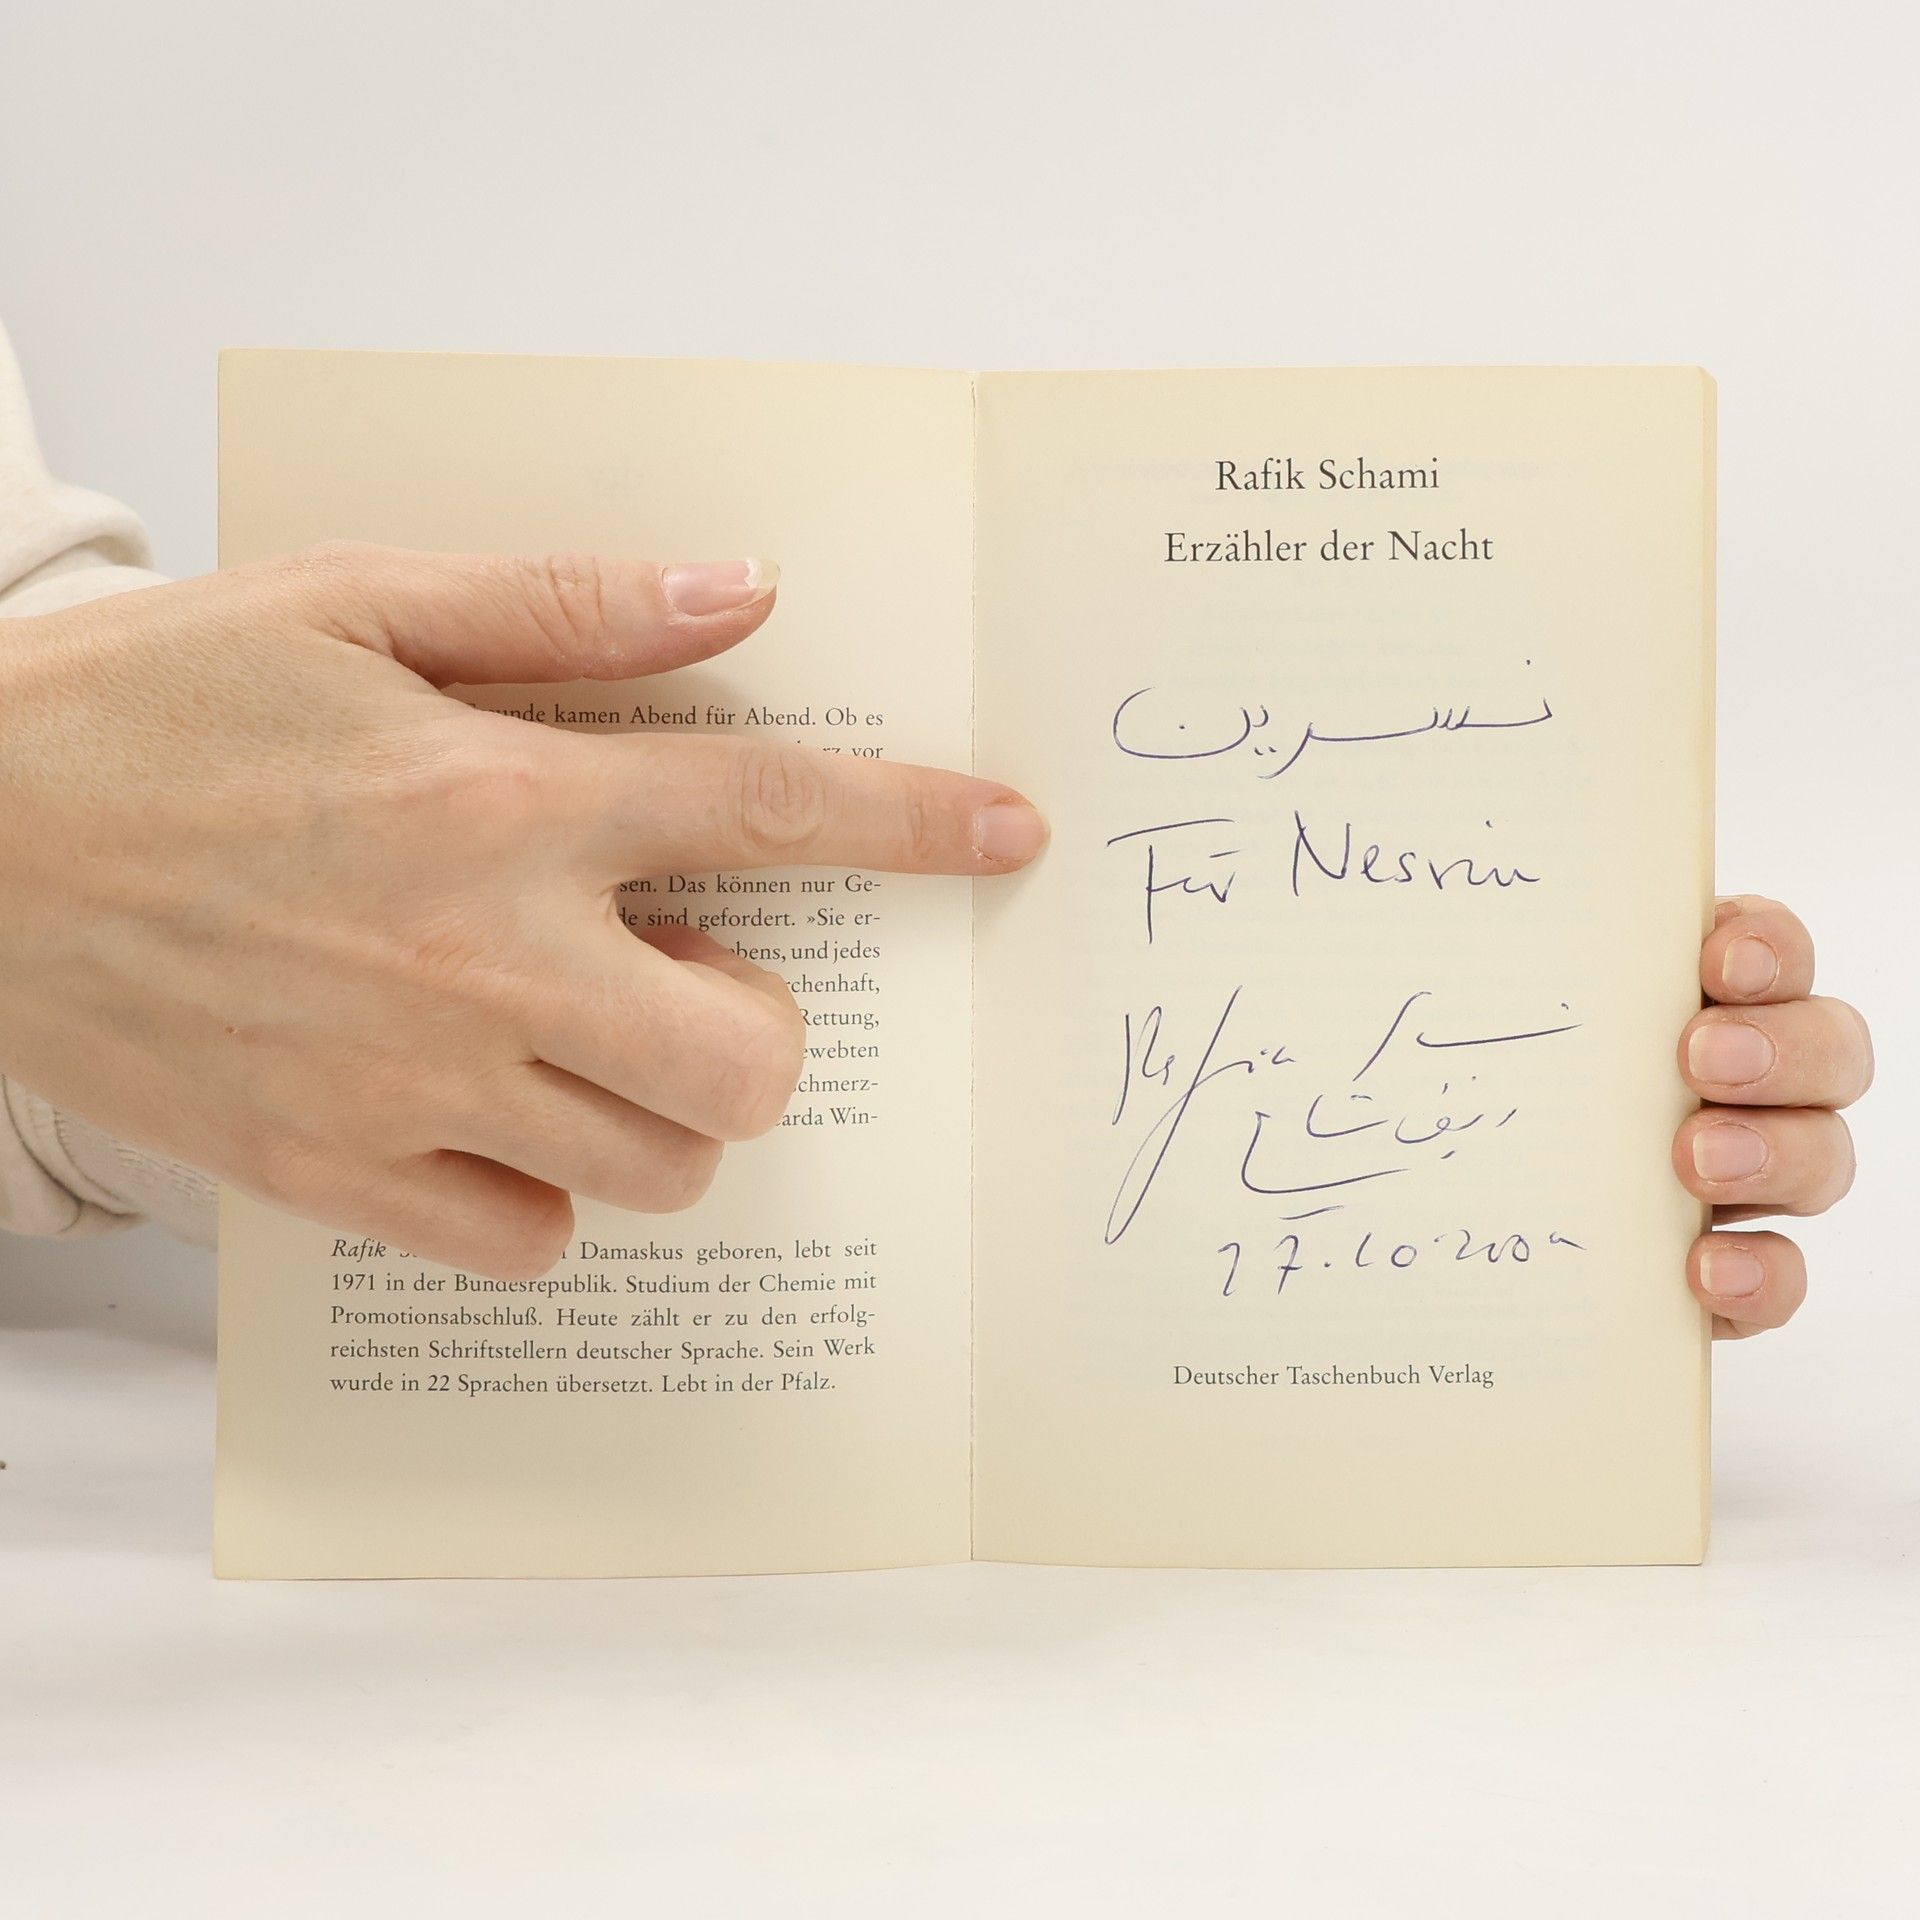 Freunde kamen Abend für Abend. Ob es
vor
sen. Das können nur Ge-
de sind gefordert. »Sie er-
bens, und jedes
rchenhaft,
Rettung,
ewebten
chmerz-
arda Win-
Rafik
Damaskus geboren, lebt seit
1971 in der Bundesrepublik. Studium der Chemie mit
Promotionsabschluß. Heute zählt er zu den erfolg-
reichsten Schriftstellern deutscher Sprache. Sein Werk
wurde in 22 Sprachen übersetzt. Lebt in der Pfalz.
Rafik Schami
Erzähler der Nacht
نسرين
Für Nesrin
Rafik Schami
رفيق شامي
27.10.200
Deutscher Taschenbuch Verlag